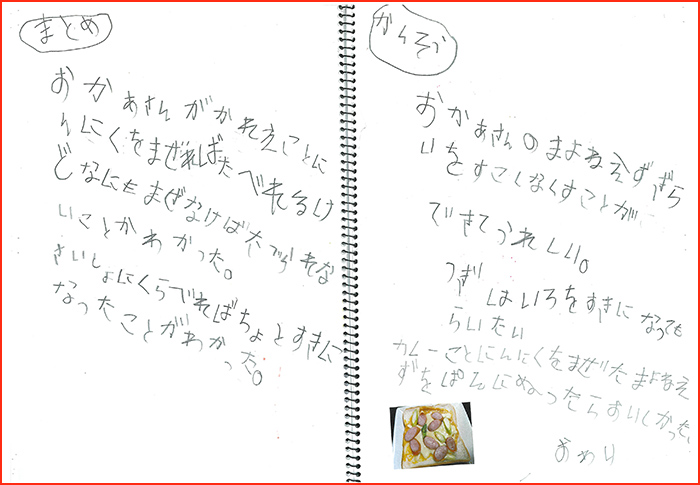 まとめ
おかあさんがかれえことに
んにくをまぜればたべれるけ
どなにもまざなけばたべられな
いことかわかった。
さいしょにくらべればちょとすきに
なったことがわかった。
かんそう
おかあさんのまよねえずぎら
いをすこしなくすことが
できてうれしい。
つぎはいろをすきになっても
らいたい
カレーことにんにくをまぜたまよねえ
ずをぱんにぬったらおいしかった、
おわり